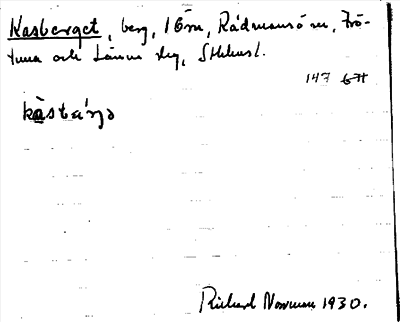 Kasberget, berg, 16m, Rådmansö sn, Frö-
tuna och Länna slg, Sthlmsl.
147 GH
kàstárjə
Richard Norrman 1930.